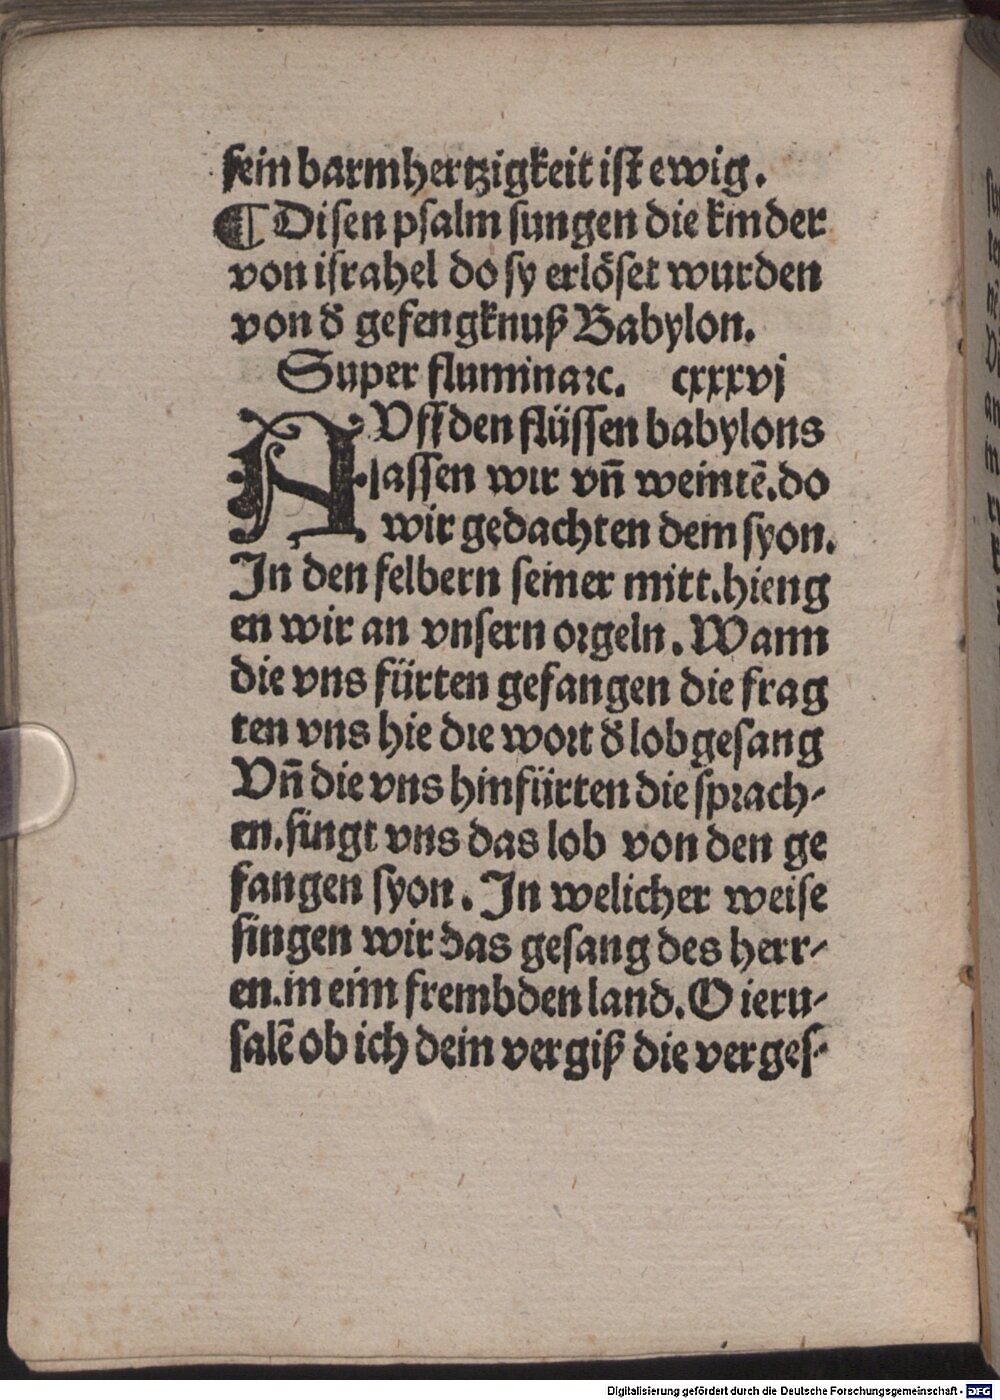 sein barmhertzigkeit ist ewig.
¶ Disen psalm sungen die kinder
von israhel do sy erlöset wurden
von d̄ gefengknuß Babylon.
Super fluminaꝛc. cxxxvj
AUff den flüssen babylons
sassen wir vn̄ weintē. do
wir gedachten dem syon.
In den felbern seiner mitt. hieng
en wir an vnsern orgeln. Wann
die vns fürten gefangen die frag
ten vns hie die wort d̄ lobgesang
Vn̄ die vns hinfürten die sprach-
en. singt vns das lob von den ge
sangen syon. In welicher weise
singen wir das gesang des herr-
en. in eim frembden land. O ieru-
salē ob ich dein vergiß die verges-
Digitalisierung gefördert durch die Deutsche Forschungsgemeinschaft - DFG